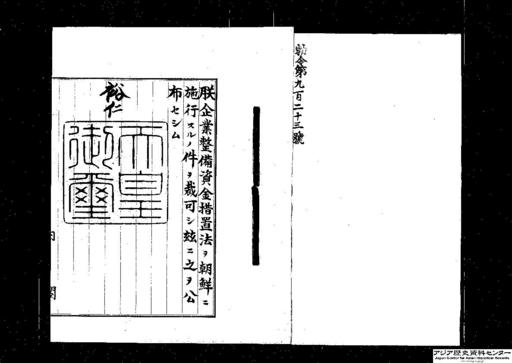 勅令第九百二十三號
朕企業整備資金措置法ヲ朝鮮ニ
施行スルノ件ヲ裁可シ玆ニ之ヲ公
布セシム
裕仁
天皇
御璽
内閣
アジア歴史資料センター
Japan Center for Asian Historical Records